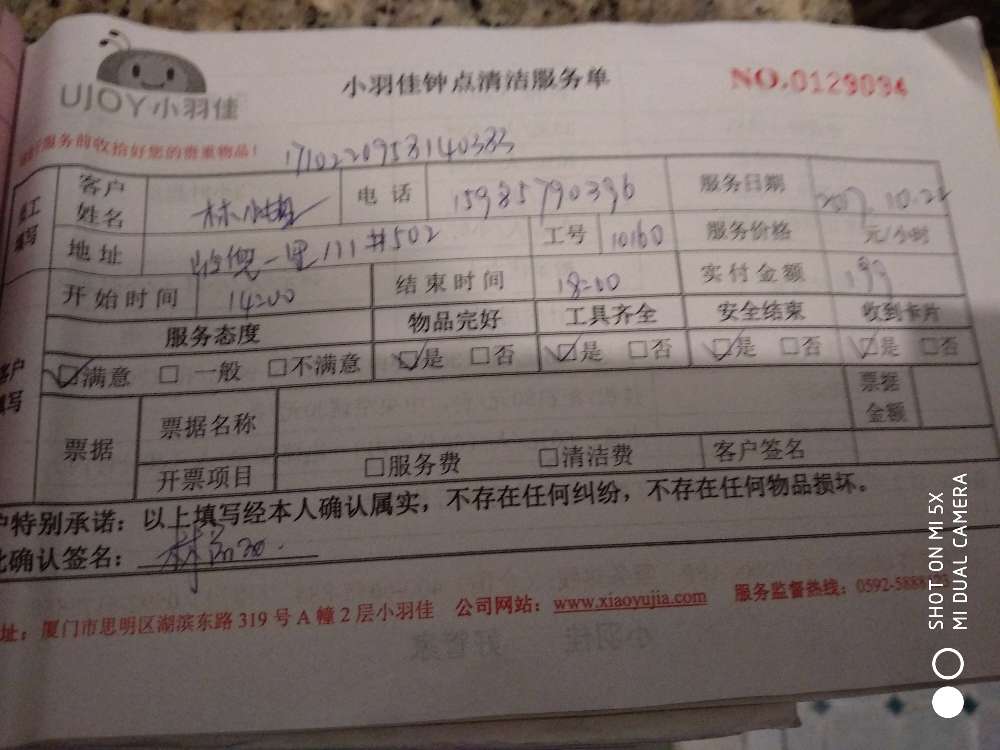 UJOY小羽佳
小羽佳钟点清洁服务单
NO.0129094
服务前收拾好您的贵重物品!
客户姓名 林 电话 15985790396 服务日期 2017.10.22
地址 一里111#502 工号 10160 服务价格 元/小时
开始时间 14:00 结束时间 18:00 实付金额 199
服务态度 物品完好 工具齐全 安全结束 收到卡片
☑满意 □一般 □不满意 ☑是 □否 ☑是 □否 ☑是 □否 ☑是 □否
票据 票据名称 票据金额
开票项目 □服务费 □清洁费 客户签名
户特别承诺:以上填写经本人确认属实,不存在任何纠纷,不存在任何物品损坏。
此确认签名:
址:厦门市思明区湖滨东路319号A幢2层小羽佳 公司网站:www.xiaoyujia.com 服务监督热线:0592-5888
SHOT ON MI 5X
MI DUAL CAMERA